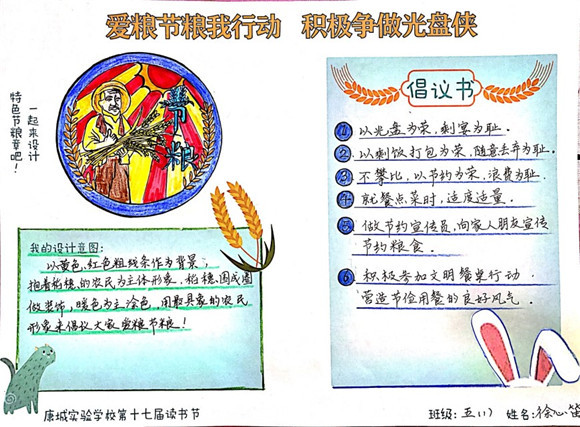 爱粮节粮我行动 积极争做光盘侠
一起来设计
特色节粮章吧！
节粮
我的设计意图：
以黄色，红色粗线条作为背景，
抱着稻穗的农民为主体形象，稻穗围成圈
做装饰，暖色为主涂色，用最具象的农民
形象来倡议大家爱粮节粮！
倡议书
1 以光盘为荣，剩宴为耻．
2 以剩饭打包为荣，随意丢弃为耻．
3 不攀比，以节约为荣，浪费为耻．
4 就餐点菜时，适度适量．
5 做节约宣传员，向家人朋友宣传
节约粮食．
6 积极参加文明餐桌行动．
营造节俭用餐的良好风气．
康城实验学校第十七届读书节
班级：五(1) 姓名：徐心笛